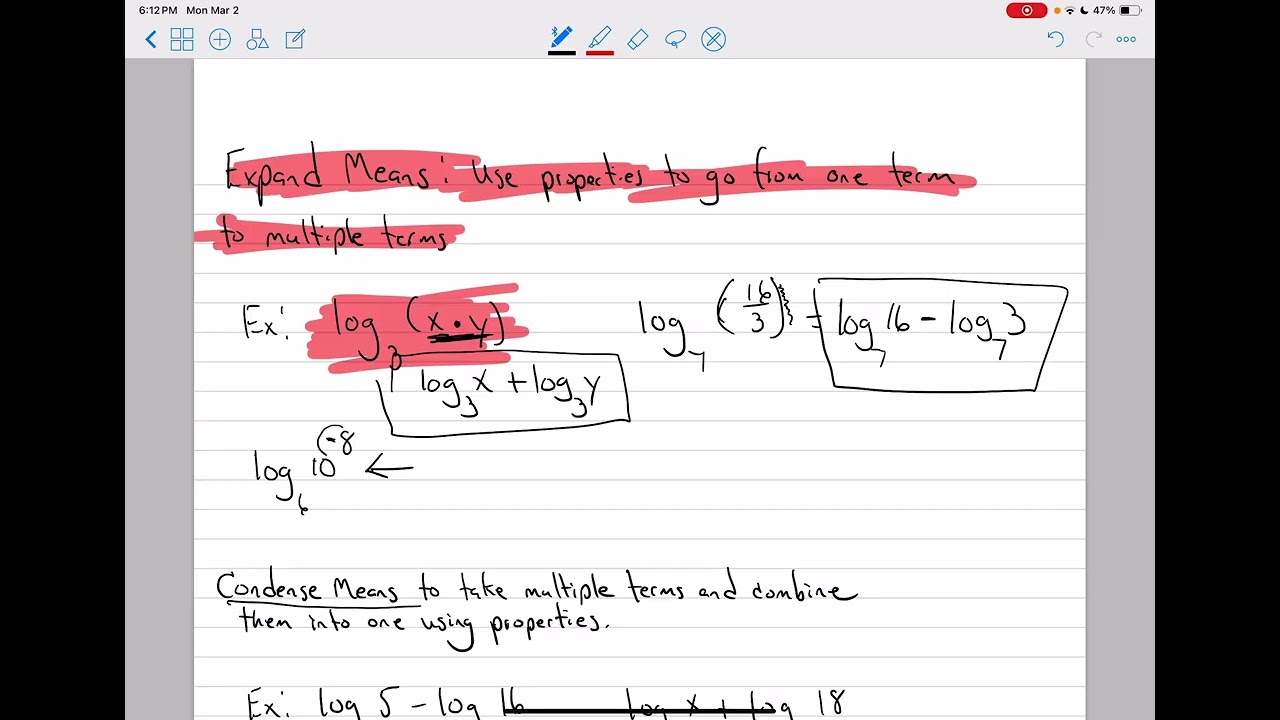 6:12 PM Mon Mar 2
47%
Expand Means: Use properties to go from one term
to multiple terms
Ex: log₃(x·y) log₇(16/3) = log₇16 - log₇3
log₃x + log₃y
log₆10⁻⁸ ←
Condense Means to take multiple terms and combine
them into one using properties.
Ex: log 5 - log 16 log x + log 18